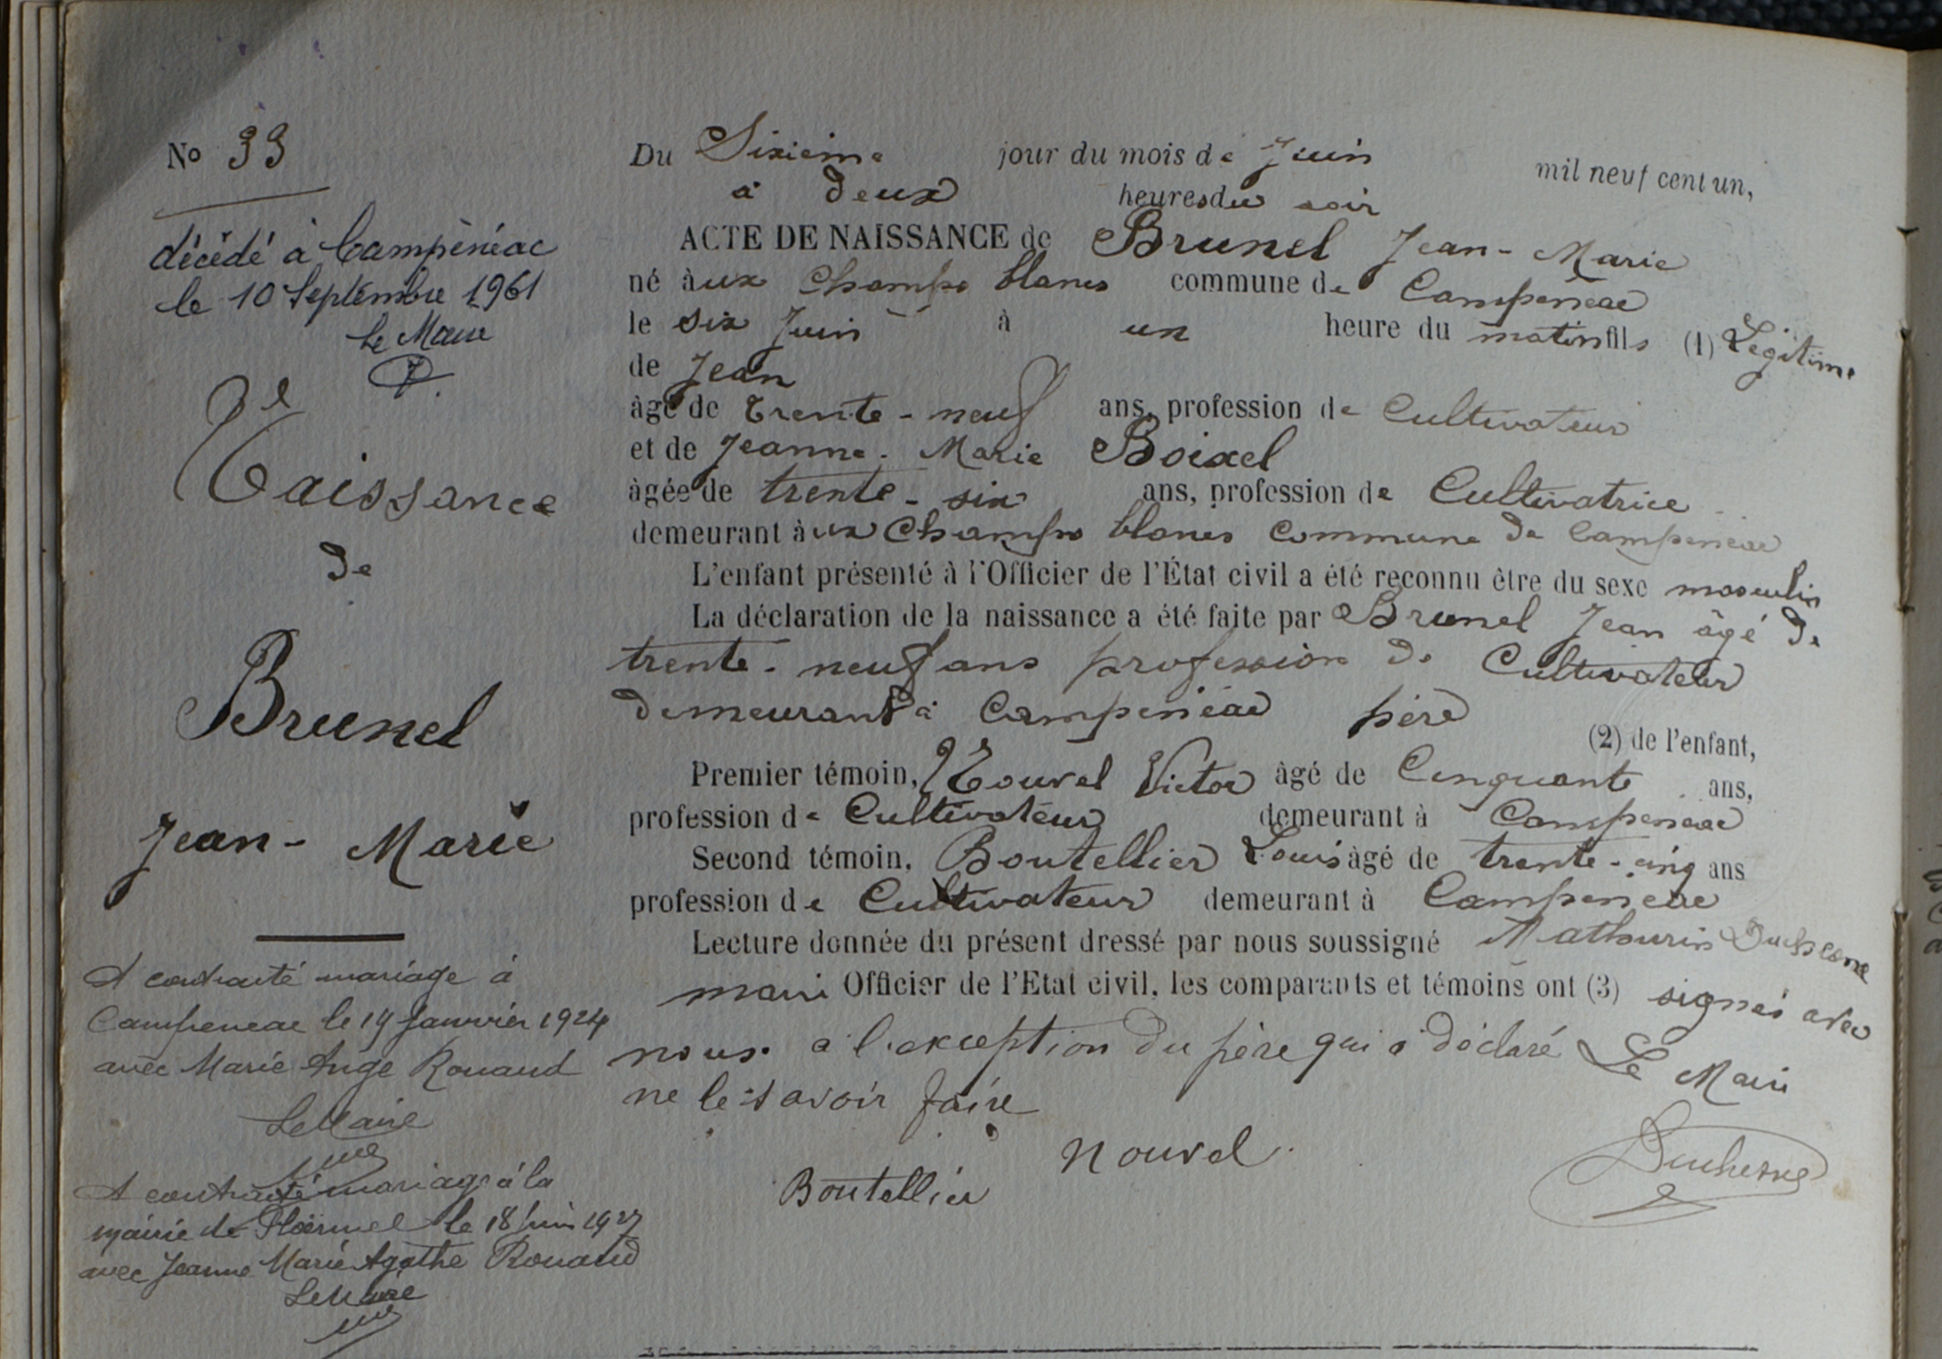 No 33
décédé à Campénéac
le 10 Septembre 1961
le Maire
Naissance
de
Brunel
Jean-Marie
A contracté mariage à
Campeneac le 19 Janvier 1924
avec Marie Ange Rouaud
Le Maire
A contracté mariage à la
mairie de Ploërmel le 18 Juin 1927
avec Jeanne Marie Agathe Rouaud
Le Maire
Du Sixième jour du mois de Juin mil neuf cent un,
à deux heures du soir
ACTE DE NAISSANCE de Brunel Jean-Marie
né à ux Champs blancs commune de Campénéac
le six Juin à un heure du matin fils (1) Légitime
de Jean
âgé de trente-neuf ans, profession de Cultivateur
et de Jeanne-Marie Boixel
âgée de trente-six ans, profession de Cultivatrice
demeurant à ux Champs blancs commune de Campeneac
L'enfant présenté à l'Officier de l'État civil a été reconnu être du sexe masculin
La déclaration de la naissance a été faite par Brunel Jean âgé de
trente-neuf ans profession de Cultivateur
demeurant à Campénéac père (2) de l'enfant,
Premier témoin, Nouvel Victor âgé de Cinquante ans,
profession de Cultivateur demeurant à Campeneac
Second témoin, Boutellier Louis âgé de trente-cinq ans
profession de Cultivateur demeurant à Campeneac
Lecture donnée du présent dressé par nous soussigné Mathurin Duchesne
maire Officier de l'Etat civil, les comparants et témoins ont (3) signés avec
nous à l'exception du père qui a déclaré Le Maire
ne le savoir faire
Nouvel
Boutellier
Duchesne